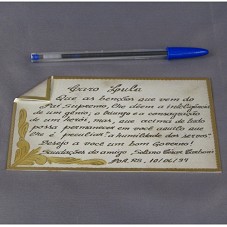 Caro Lula
Que as bençãos que vem do
Pai Supremo, lhe dêem a inteligência
de um gênio, o triunfo e a consagração
de um herói, mas, que acima de tudo
possa permanecer em você aquilo que
lhe é peculiar "a humildade dos servos"
Desejo a você um bom Governo!
Saudações do amigo, César
POA. RS, 10/06/